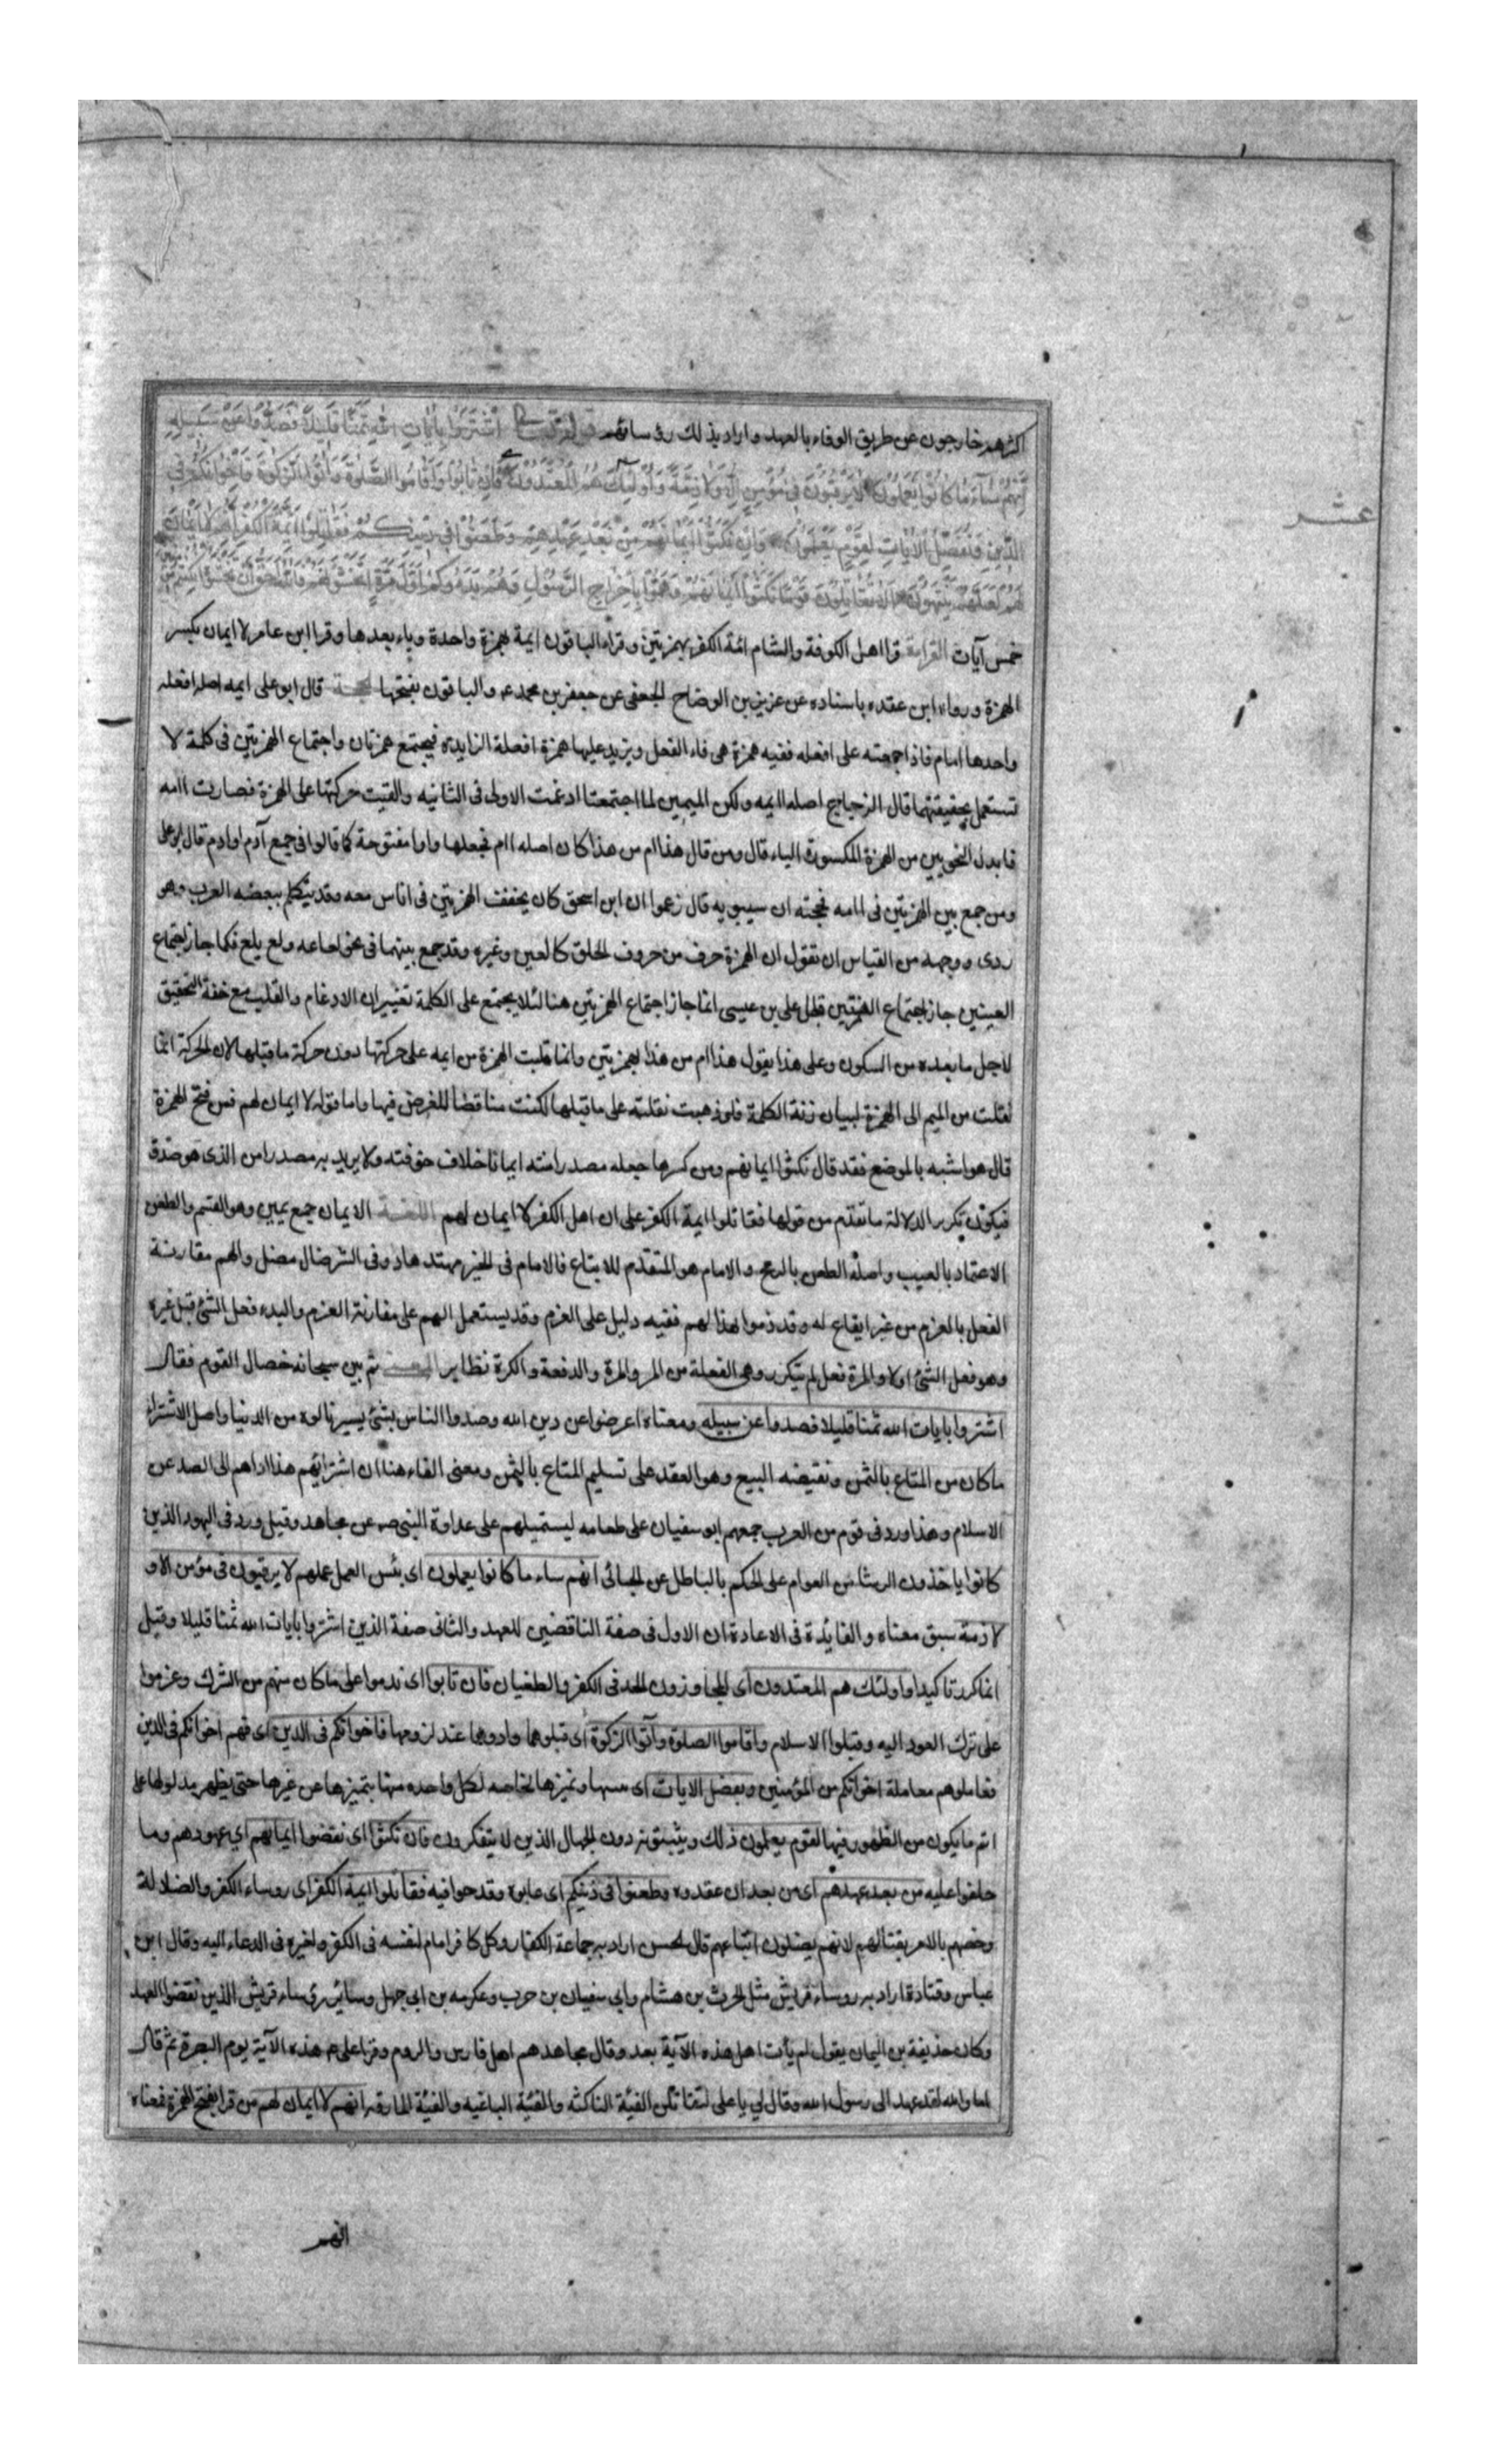 اكثرهم خارجون عن طريق الوفاء بالعهد واراد بذلك رؤسائهم قوله تعالى اشْتَرَوْا بِآيَاتِ اللهِ ثَمَنًا قَلِيلًا فَصَدُّوا عَنْ سَبِيلِهِ
اِنَّهُمْ سَاءَ مَا كَانُوا يَعْمَلُونَ لَا يَرْقُبُونَ فِي مُؤْمِنٍ اِلًّا وَلَا ذِمَّةً وَاُولَئِكَ هُمُ الْمُعْتَدُونَ فَاِنْ تَابُوا وَاَقَامُوا الصَّلٰوةَ وَاٰتَوُا الزَّكٰوةَ فَاِخْوَانُكُمْ فِي
الدِّينِ وَنُفَصِّلُ الْاٰيَاتِ لِقَوْمٍ يَعْلَمُونَ وَاِنْ نَكَثُوا اَيْمَانَهُمْ مِنْ بَعْدِ عَهْدِهِمْ وَطَعَنُوا فِي دِينِكُمْ فَقَاتِلُوا اَئِمَّةَ الْكُفْرِ اِنَّهُمْ لَا اَيْمَانَ
لَهُمْ لَعَلَّهُمْ يَنْتَهُونَ اَلَا تُقَاتِلُونَ قَوْمًا نَكَثُوا اَيْمَانَهُمْ وَهَمُّوا بِاِخْرَاجِ الرَّسُولِ وَهُمْ بَدَؤُكُمْ اَوَّلَ مَرَّةٍ اَتَخْشَوْنَهُمْ فَاللهُ اَحَقُّ اَنْ تَخْشَوْهُ اِنْ كُنْتُمْ
خمس آيات القراءة قرا اهل الكوفة والشام ائمة الكفر بهمزتين وقراء الباقون ايمة بهمزة واحدة وياء بعدها وقرا ابن عامر لا ايمان بكسر
الهمزة ورواه ابن عقده باسناده عن عزيز بن الوضاح الجعفى عن جعفر بن محمد ع والباقون بفتحها الحجة قال ابو على ايمه اصله افعله
واحدها امام فاذا جمعته على افعله ففيه همزة هى فاء الفعل ويزيد عليها همزة افعلة الزايدة فيجتمع همزتان واجتماع الهمزتين فى كلمة لا
تستعمل بحقيقتهما قال الزجاج اصله اايمه ولكن الميمين لما اجتمعتا ادغمت الاولى فى الثانيه والقيت حركتها على الهمزة فصارت اامه
فابدل النحويين من الهمزة المكسورة الياء قال ومن قال هذا ام من هذا كان اصله اام فجعلها واوا مفتوحة كما قالوا فى جمع آدم اوادم قال ابو على
ومن جمع بين الهمزتين فى اامه فحجته ان سيبويه قال زعموا ان ابن اسحق كان يحقق الهمزتين فى اناس معه وقد يتكلم ببعضه العرب وهو
ردى ووجهه من القياس ان تقول ان الهمزة حرف من حروف الحلق كالعين وغيره وقد جمع بينهما فى نحو لعاعه ولع يلع فكما جاز اجتماع
العينين جاز اجتماع الهمزتين قال على بن عيسى انما جاز اجتماع الهمزتين هنا لئلا يجتمع على الكلمة تغييران الادغام والقلب مع خفة التحقيق
لاجل ما بعده من السكون وعلى هذا يقول هذا ام من هذا بهمزتين وانما قلبت الهمزة من ايمه على حركتها دون حركة ما قبلها لان الحركة انما
نقلت من الميم الى الهمزة لبيان زنة الكلمة فلو ذهبت نقلته على ما قبلها لكنت مناقضا للغرض فيها واما قوله لا ايمان لهم فمن فتح الهمزة
قال هو اشبه بالموضع فقد قال نكثوا ايمانهم ومن كسرها جعله مصدر امنته ايمانا خلاف خوفته ولا يريد به مصدر امن الذى هو صدق
فيكون تكرير الدلالة ما تقدم من قولها فقاتلوا ايمة الكفر على ان اهل الكفر لا ايمان لهم اللغة الايمان جمع يمين وهو القسم والطعن
الاعتماد بالعيب واصله الطعن بالرمح والامام هو المتقدم للاتباع فالامام فى الخير مهتد هاد وفى الشر ضال مضل والهم مقارنة
الفعل بالعزم من غير ايقاع له وقد ذموا بهذا لهم ففيه دليل على العزم وقد يستعمل الهم على مقارنة العزم والبدء فعل الشئ قبل غيره
وهو فعل الشئ اولا والمرة فعل لم يتكرر وهى الفعلة من المر والمرة والدفعة والكرة نظاير المعنى ثم بين سبحانه خصال القوم فقال
اشتروا بايات الله ثمنا قليلا فصدوا عن سبيله ومعناه اعرضوا عن دين الله وصدوا الناس بشئ يسير نالوه من الدنيا واصل الاشتراء
ما كان من المتاع بالثمن ونقيضه البيع وهو العقد على تسليم المتاع بالثمن ومعنى الفاء هنا ان اشترائهم هذا اداهم الى الصد عن
الاسلام وهذا ورد فى قوم من العرب جمعهم ابو سفيان على طعامه ليستميلهم على عداوة النبى ص عن مجاهد وقيل ورد فى اليهود الذين
كانوا ياخذون الرشا من العوام على الحكم بالباطل عن الجبائى انهم ساء ما كانوا يعملون اى بئس العمل عملهم لا يرقبون فى مؤمن الا و
لا ذمة سبق معناه والفايدة فى الاعادة ان الاول فى صفة الناقضين للعهد والثانى صفة الذين اشتروا بايات الله ثمنا قليلا وقيل
انما كرر تاكيدا واولئك هم المعتدون اى المجاوزون الحد فى الكفر والطغيان فان تابوا اى ندموا على ما كان منهم من الشرك وعزموا
على ترك العود اليه وقبلوا الاسلام واقاموا الصلوة وآتوا الزكوة اى قبلوهما وادوهما عند لزومها فاخوانكم فى الدين اى فهم اخوانكم فى الدين
فعاملوهم معاملة اخوانكم من المؤمنين ونفصل الايات اى نبينها ونميزها بخاصه لكل واحده منها يتميزها عن غيرها حتى يظهر مدلولها على
اتم ما يكون من الظهور فيها لقوم يعلمون ذلك ويثبتونه دون الجهال الذين لا يتفكرون فان نكثوا اى نقضوا ايمانهم اى عهودهم وما
حلفوا عليه من بعد عهدهم اى من بعد ان عقدوه وطعنوا فى دينكم اى عابوه وقدحوا فيه فقاتلوا ايمة الكفر اى روساء الكفر والضلالة
وخصهم بالامر بقتالهم لانهم يضلون اتباعهم قال الحسن اراد به جماعة الكفار وكل كافر امام لنفسه فى الكفر ولغيره فى الدعاء اليه وقال ابن
عباس وقتادة اراد به روساء قريش مثل الحرث بن هشام وابى سفيان بن حرب وعكرمه بن ابى جهل وسائر رؤساء قريش الذين نقضوا العهد
وكان حذيفة بن اليمان يقول لم يأت اهل هذه الآية بعد وقال مجاهد هم اهل فارس والروم وقرا على ع هذه الآية يوم البصرة ثم قال
اما والله لقد عهد الى رسول الله وقال لى يا على لتقاتلن الفيئة الناكثه والفئية الباغيه والفيئة المارقه انهم لا ايمان لهم من قرا بفتح الهمزة فمعناه
عشر
انهم